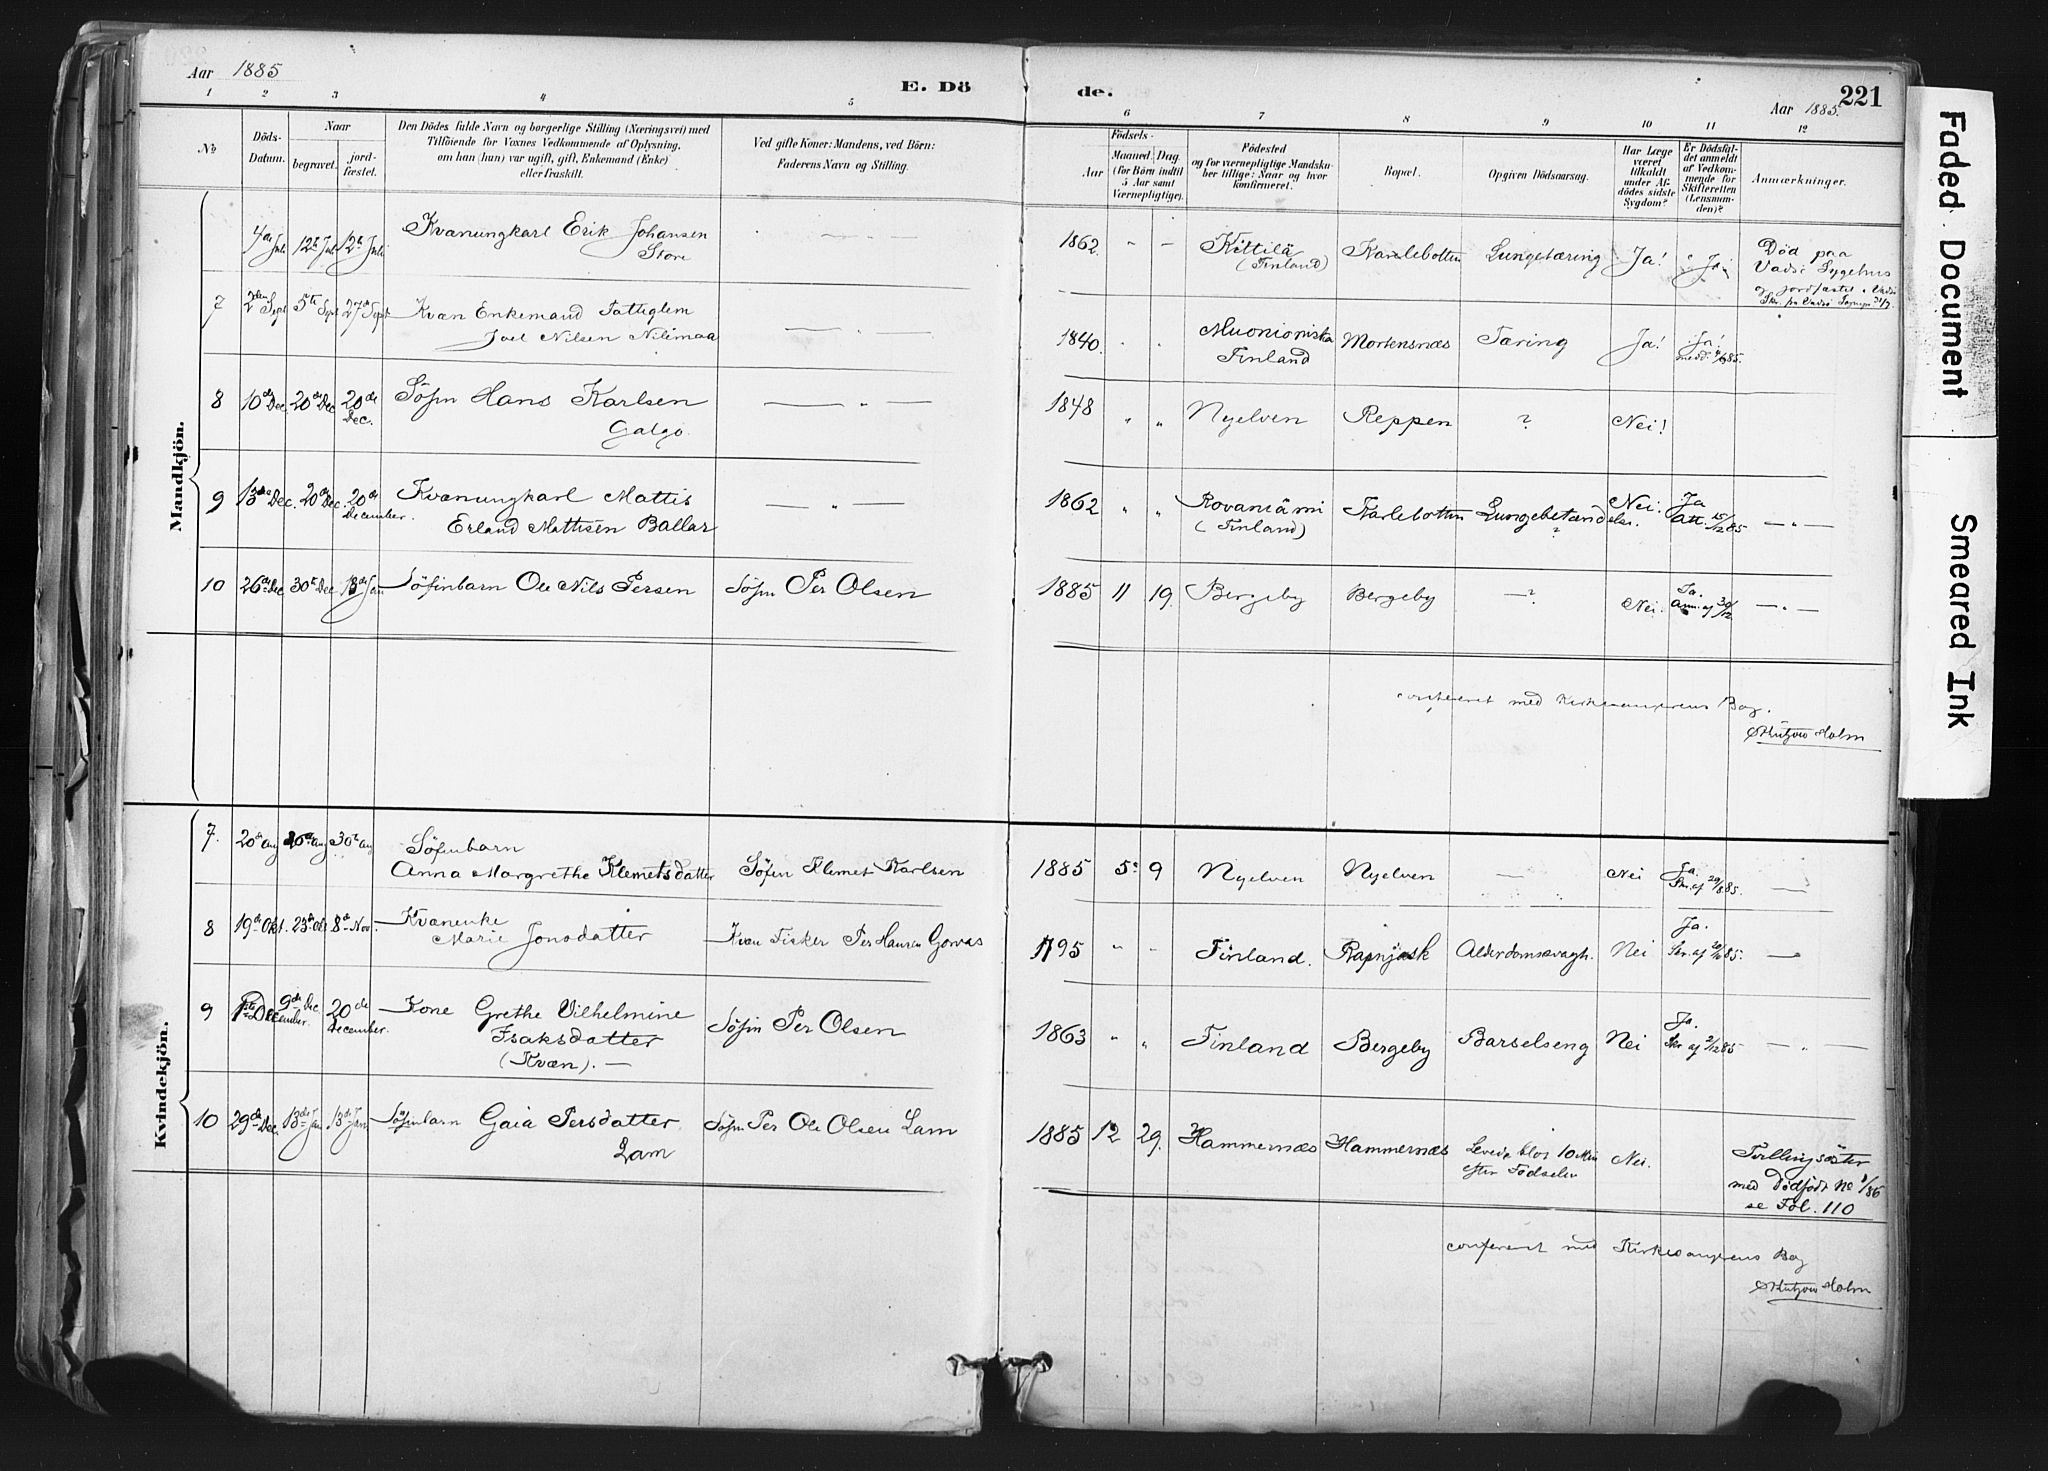 Aar 1885
E. Dö
de.
Aar 1885.
221
1 2 3 4 5
6 7 8 9 10 11 12
No
Döds-
Datum.
Naar
begravet.
jord-
fæstet.
Den Dödes fulde Navn og borgerlige Stilling (Næringsvei) med
Tilföiende for Voxnes Vedkommende af Oplysning,
om han (hun) var ugift, gift, Enkemand (Enke)
eller fraskilt.
Ved gifte Koner: Mandens, ved Börn:
Faderens Navn og Stilling.
Födsels-
Aar
Maaned.
Dag.
(for Börn indtil
5 Aar samt
Værnepligtige).
Födested
og for værnepligtige Mandsku-
ber tillige: Naar og hvor
konfirmeret.
Bopæl.
Opgiven Dödsaarsag.
Har Læge
været
tilkaldt
under Af-
dödes sidste
Sygdom?
Er Dödsfal-
det anmeldt
af Vedkom-
mende for
Skifteretten
(Lensman-
den)?
Anmærkninger.
Mandkjön.
4de Juli 12te Juli 12te Juli Kvænungkarl Erik Johansen
Store
1862. " - Kittilä
(Finland)
Karlebotten Lungetæring Ja! Ja
Död paa
Vadsö Sygehus
og jordfæstet i Vadsö
7 2den Sept 5te Sept 27de Sept Kvæn Enkemand Fattiglem
Joel Nilsen Nilimaa
1840. " " Muonioniska
Finland
Mortensnæs Tæring Ja! Ja!
8 10de Dec. 20de Dec 20de
Dec.
Söfin Hans Karlsen
Galgo.
1848 " " Nyelven Reppen ? Nei!
9 13de Dec. 20de Dec. 20de
December.
Kvænungkarl Mattis
Erland Mattisen Ballar
1862 " " Rovaniämi
(Finland)
Karlebotten Lungebetændelse.
?
Nei. Ja
Att. 15/12 85
10 26de Dec 30te Dec 13de Jan Söfinbarn Ole Nils Persen Söfin Per Olsen
1885 11 19. Bergeby Bergeby —? Nei. Ja.
Anm. af 30/12
confereret med Kirkesangerens Bog.
Holm
Kvindekjön.
7. 20de Aug 26de Aug 30te Aug Söfinbarn
Anna Margrethe Klemetsdatter Söfin Klemet Karlsen
1885 5 9 Nyelven Nyelven — Nei Ja.
Skr. af 29/8 85.
8 19de Okt. 25de Okt 8de Nov. Kvænenke
Marie Jonsdatter Kvæn Fisker Per Hansen Gorvas
1795 " " Finland. Alderdomssvagh. Nei Ja.
Skr. af 20/10 85.
9 1ste Dec 9de Dec
ember.
20de
December.
Kone Grethe Vilhelmine
Isaksdatter
(Kvæn). —
Söfin Per Olsen
1863 " " Finland Bergeby Barselseng Nei Ja.
Skr af 2/12 85
10 29de Dec. 13de Jan 13de Jan Söfinbarn Gaia Persdatter
Lam
Söfin Per Ole Olsen Lam
1885 12 29. Hammernæs Hammernæs Levede blot 10 Min
efter Födselen
Nei.
Tvillingsöster
med Dödfödt No 1/86
se Fol. 110
confereret med Kirkesangerens Bog
Holm
Faded Document
Smeared Ink